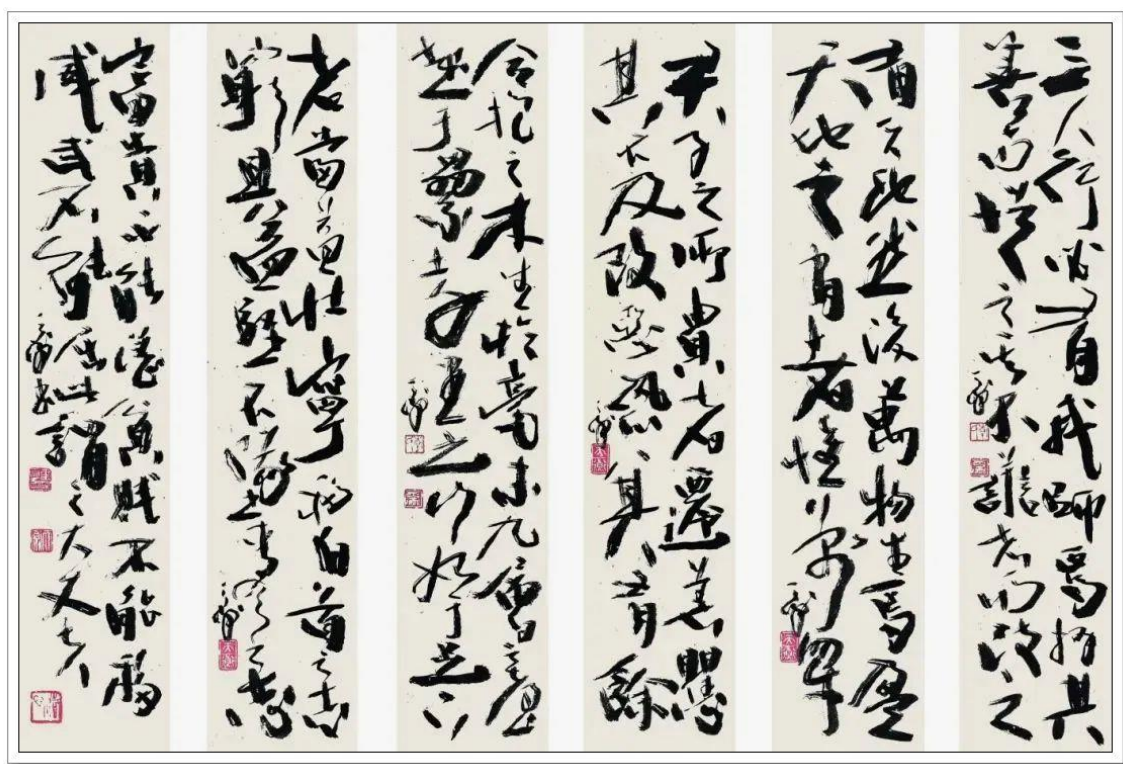 三人行必有我師焉擇其
善而從之其不善者而改之
有天地然後萬物生焉盈
天地之間者惟萬物
君子之所貴者遷善懼
其不及改惡恐其有餘
合抱之木生於毫末九層之臺
起于累土千里之行始于足下
老當益壯寧移白首之志
窮且益堅不墜青雲之志
富貴不能淫貧賤不能移
威武不能屈此謂之大丈夫